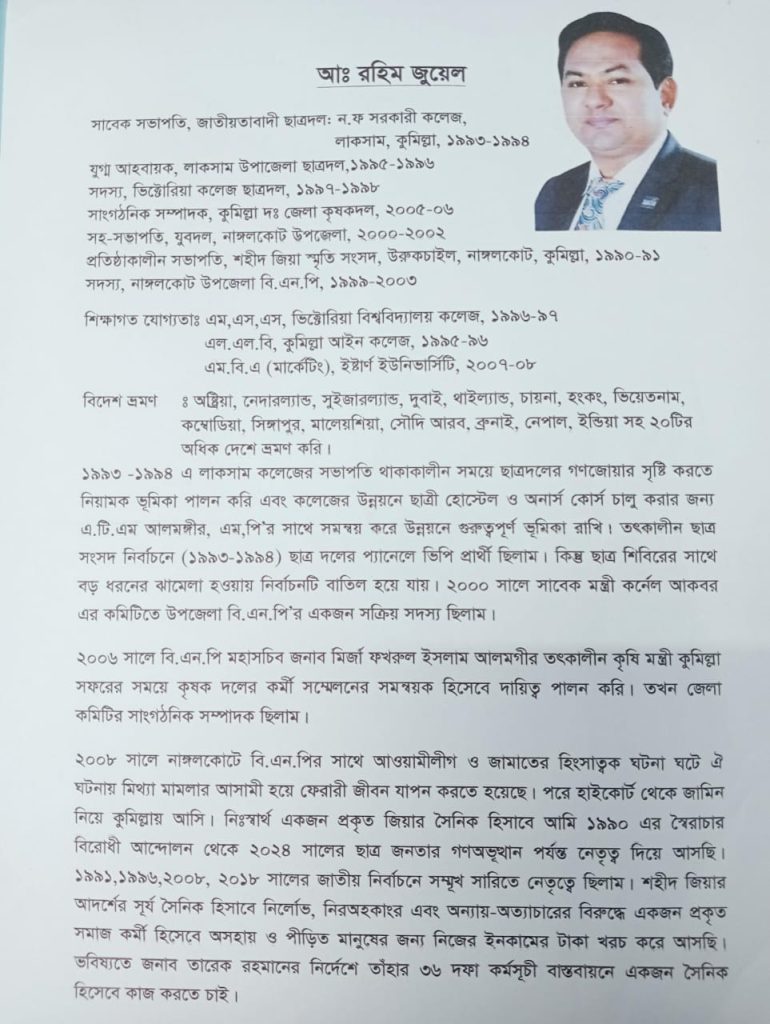 আঃ রহিম জুয়েল
সাবেক সভাপতি, জাতীয়তাবাদী ছাত্রদল: ন.ফ সরকারী কলেজ,
লাকসাম, কুমিল্লা, ১৯৯৩-১৯৯৪
যুগ্ম আহবায়ক, লাকসাম উপাজেলা ছাত্রদল,১৯৯৫-১৯৯৬
সদস্য, ভিক্টোরিয়া কলেজ ছাত্রদল, ১৯৯৭-১৯৯৮
সাংগঠনিক সম্পাদক, কুমিল্লা দঃ জেলা কৃষকদল, ২০০৫-০৬
সহ-সভাপতি, যুবদল, নাঙ্গলকোট উপজেলা, ২০০০-২০০২
প্রতিষ্ঠাকালীন সভাপতি, শহীদ জিয়া স্মৃতি সংসদ, উরুকচাইল, নাঙ্গলকোট, কুমিল্লা, ১৯৯০-৯১
সদস্য, নাঙ্গলকোট উপজেলা বি.এন.পি, ১৯৯৯-২০০৩
শিক্ষাগত যোগ্যতাঃ এম,এস,এস, ভিক্টোরিয়া বিশ্ববিদ্যালয় কলেজ, ১৯৯৬-৯৭
এল.এল.বি, কুমিল্লা আইন কলেজ, ১৯৯৫-৯৬
এম.বি.এ (মার্কেটিং), ইষ্টার্ণ ইউনিভার্সিটি, ২০০৭-০৮
বিদেশ ভ্রমণ ঃ অষ্ট্রিয়া, নেদারল্যান্ড, সুইজারল্যান্ড, দুবাই, থাইল্যান্ড, চায়না, হংকং, ভিয়েতনাম,
কম্বোডিয়া, সিঙ্গাপুর, মালেয়শিয়া, সৌদি আরব, ব্রুনাই, নেপাল, ইন্ডিয়া সহ ২০টির
অধিক দেশে ভ্রমণ করি।
১৯৯৩ -১৯৯৪ এ লাকসাম কলেজের সভাপতি থাকাকালীন সময়ে ছাত্রদলের গণজোয়ার সৃষ্টি করতে
নিয়ামক ভূমিকা পালন করি এবং কলেজের উন্নয়নে ছাত্রী হোস্টেল ও অনার্স কোর্স চালু করার জন্য
এ.টি.এম আলমঙ্গীর, এম,পি'র সাথে সমন্বয় করে উন্নয়নে গুরুত্বপূর্ণ ভূমিকা রাখি। তৎকালীন ছাত্র
সংসদ নির্বাচনে (১৯৯৩-১৯৯৪) ছাত্র দলের প্যানেলে ভিপি প্রার্থী ছিলাম। কিন্তু ছাত্র শিবিরের সাথে
বড় ধরনের ঝামেলা হওয়ায় নির্বাচনটি বাতিল হয়ে যায়। ২০০০ সালে সাবেক মন্ত্রী কর্নেল আকবর
এর কমিটিতে উপজেলা বি.এন.পি'র একজন সক্রিয় সদস্য ছিলাম।
২০০৬ সালে বি.এন.পি মহাসচিব জনাব মির্জা ফখরুল ইসলাম আলমগীর তৎকালীন কৃষি মন্ত্রী কুমিল্লা
সফরের সময়ে কৃষক দলের কর্মী সম্মেলনের সমন্বয়ক হিসেবে দায়িত্ব পালন করি। তখন জেলা
কমিটির সাংগঠনিক সম্পাদক ছিলাম।
২০০৮ সালে নাঙ্গলকোটে বি.এন.পির সাথে আওয়ামীলীগ ও জামাতের হিংসাত্বক ঘটনা ঘটে ঐ
ঘটনায় মিথ্যা মামলার আসামী হয়ে ফেরারী জীবন যাপন করতে হয়েছে। পরে হাইকোর্ট থেকে জামিন
নিয়ে কুমিল্লায় আসি। নিঃস্বার্থ একজন প্রকৃত জিয়ার সৈনিক হিসাবে আমি ১৯৯০ এর স্বৈরাচার
বিরোধী আন্দোলন থেকে ২০২৪ সালের ছাত্র জনতার গণঅভূথান পর্যন্ত নেতৃত্ব দিয়ে আসছি।
১৯৯১,১৯৯৬,২০০৮, ২০১৮ সালের জাতীয় নির্বাচনে সম্মূখ সারিতে নেতৃত্বে ছিলাম। শহীদ জিয়ার
আদর্শের সূর্য সৈনিক হিসাবে নির্লোভ, নিরঅহকাংর এবং অন্যায়-অত্যাচারের বিরুদ্ধে একজন প্রকৃত
সমাজ কর্মী হিসেবে অসহায় ও পীড়িত মানুষের জন্য নিজের ইনকামের টাকা খরচ করে আসছি।
ভবিষ্যতে জনাব তারেক রহমানের নির্দেশে তাঁহার ৩৬ দফা কর্মসূচী বাস্তবায়নে একজন সৈনিক
হিসেবে কাজ করতে চাই।